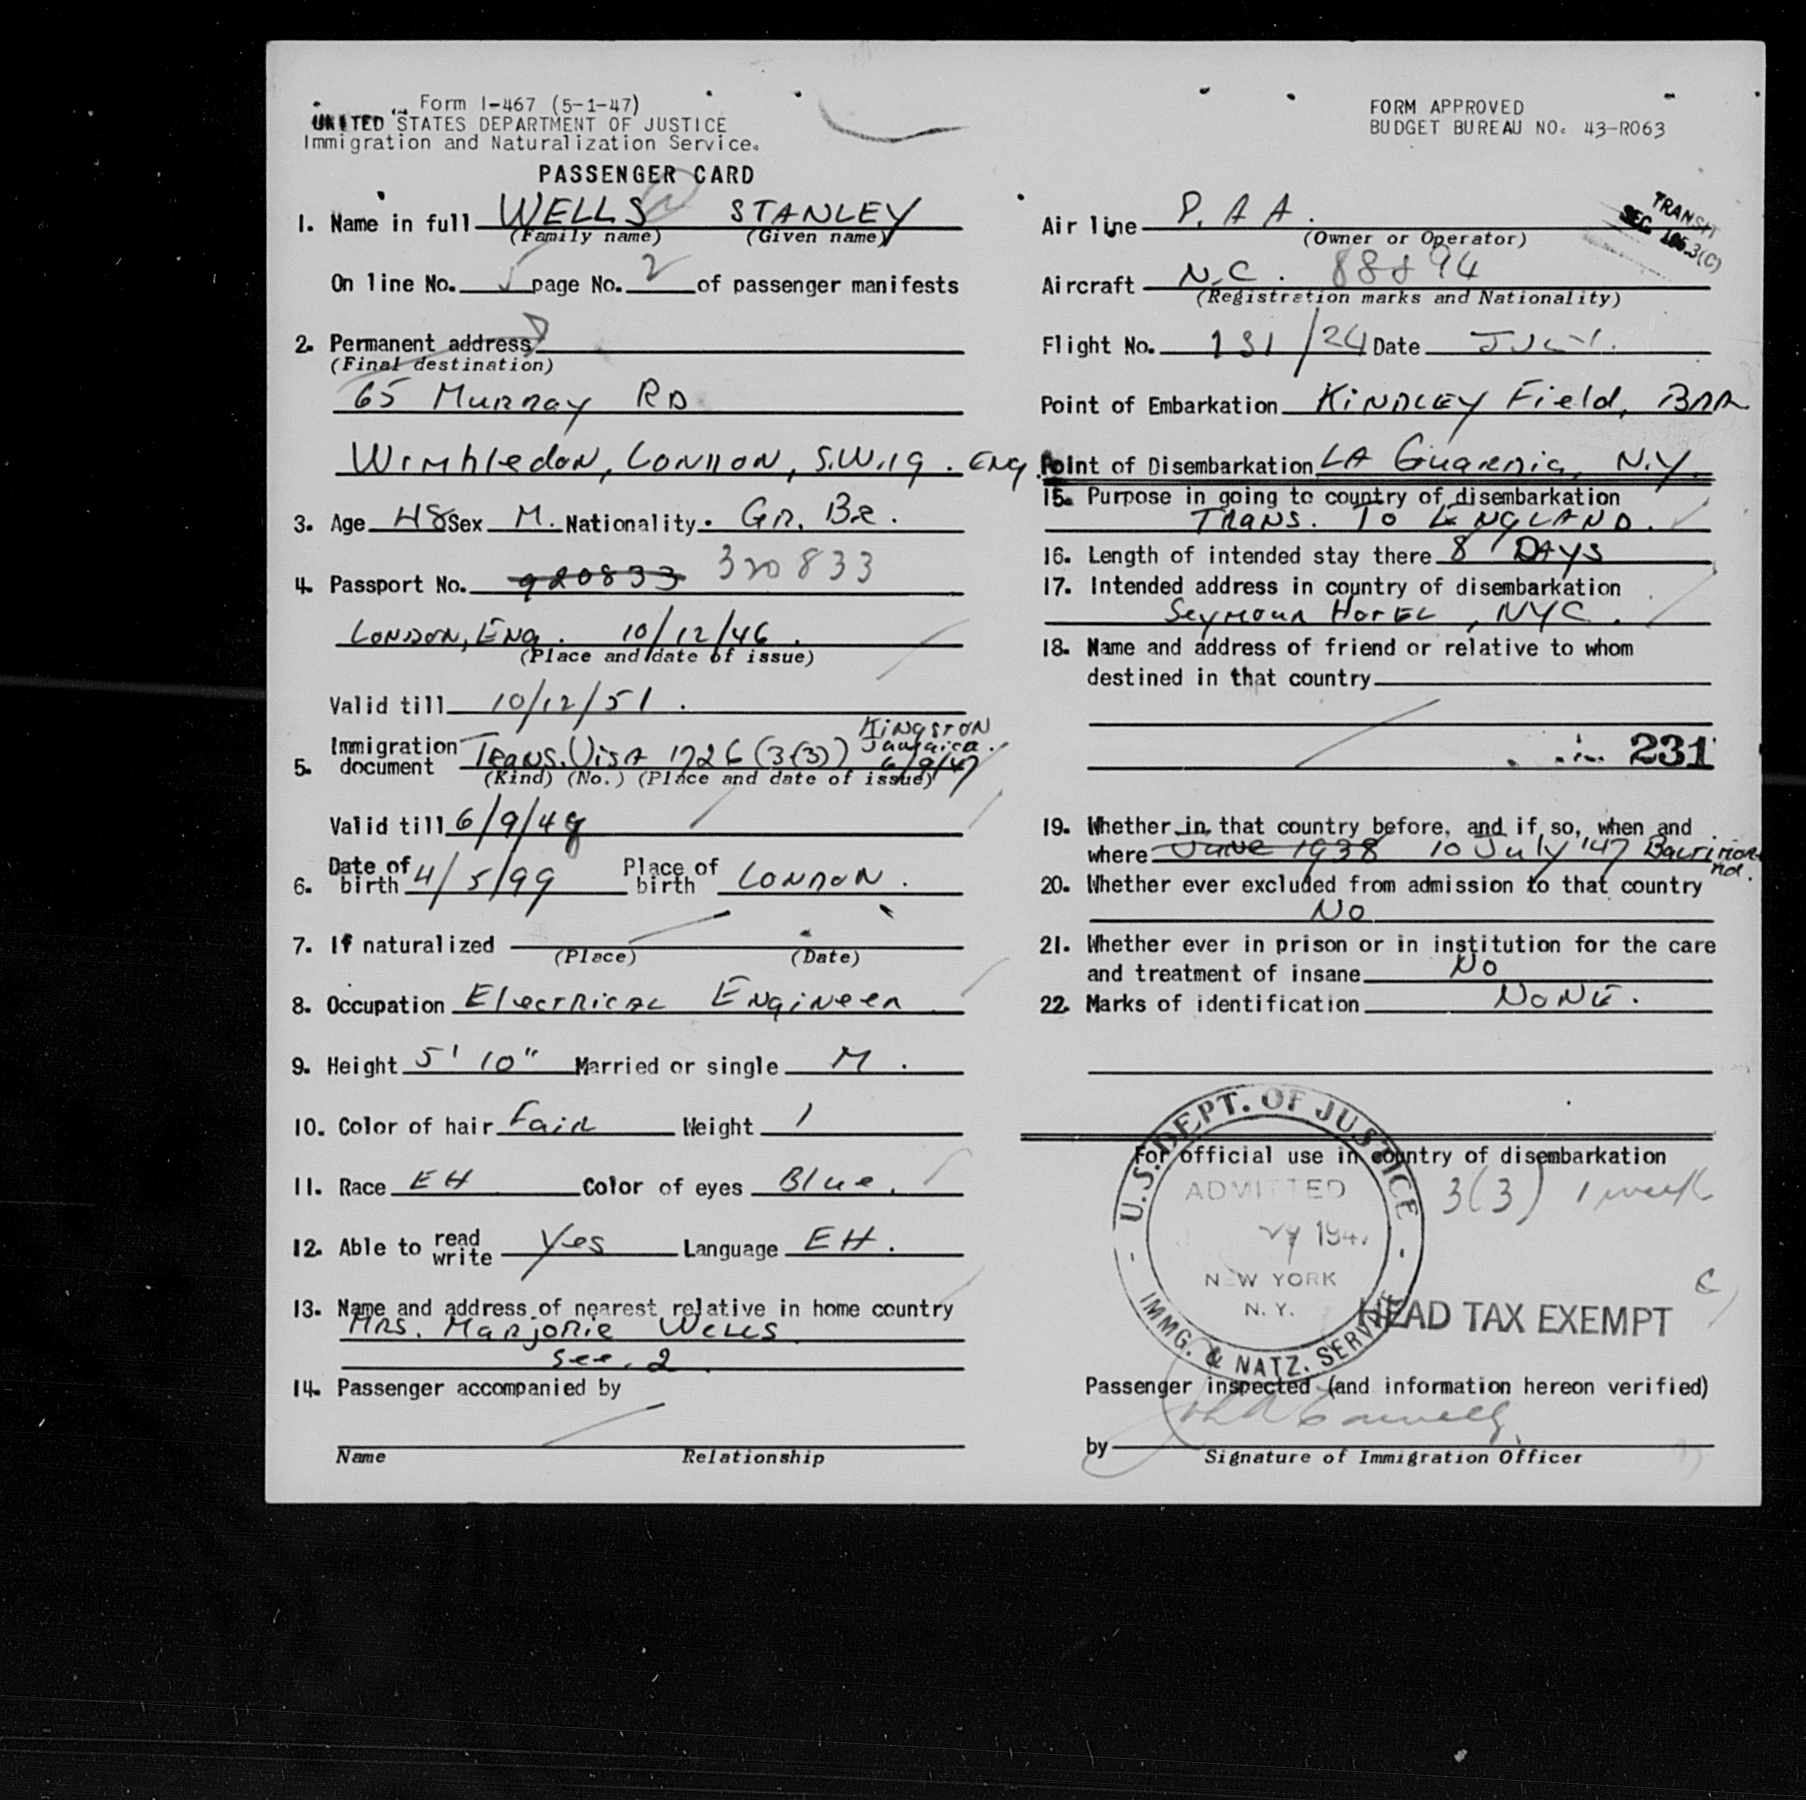 Form I-467 (5-1-47)
UNITED STATES DEPARTMENT OF JUSTICE
Immigration and Naturalization Service.
PASSENGER CARD
1. Name in full WELLS STANLEY
(Family name) (Given name)
On line No. page No. 2 of passenger manifests
2. Permanent address
(Final destination)
65 Murray RD
Wimbledon, London, S.W.19. Eng.
3. Age 48 Sex M. Nationality. Gr. Br.
4. Passport No. 920833 320833
London, Eng. 10/12/46.
(Place and date of issue)
Valid till 10/12/51.
Kingston
5. Immigration document Trans. Visa 1726 (3(3)) Jamaica. 6/9/47
(Kind) (No.) (Place and date of issue)
Valid till 6/9/48
6. Date of birth 4/5/99 Place of birth LONDON.
7. If naturalized
(Place) (Date)
8. Occupation Electrical Engineer
9. Height 5' 10" Married or single M.
10. Color of hair Fair Weight
11. Race EH Color of eyes Blue.
12. Able to read write Yes Language EH.
13. Name and address of nearest relative in home country
Mrs. Marjorie Wells
See. 2.
14. Passenger accompanied by
Name Relationship
FORM APPROVED
BUDGET BUREAU NO. 43-R063
TRANSIT
SEC. 3(C)
Air line P.A A.
(Owner or Operator)
Aircraft N.C. 88894
(Registration marks and Nationality)
Flight No. 131/24 Date
Point of Embarkation KINDLEY Field, BDA
Point of Disembarkation LA Guardia, N.Y.
15. Purpose in going to country of disembarkation
TRANS. To ENGLAND.
16. Length of intended stay there 8 DAYS
17. Intended address in country of disembarkation
Seymour Hotel, NYC.
18. Name and address of friend or relative to whom
destined in that country
231
19. Whether in that country before, and if so, when and
where June 1938 10 July '47 Baltimore
Md.
20. Whether ever excluded from admission to that country
No
21. Whether ever in prison or in institution for the care
and treatment of insane No
22. Marks of identification NONE.
For official use in country of disembarkation
U.S. DEPT. OF JUSTICE
ADMITTED
1947
NEW YORK
N. Y.
IMMG. & NATZ. SERVICE
3(3) 1 week
HEAD TAX EXEMPT
Passenger inspected (and information hereon verified)
by
Signature of Immigration Officer